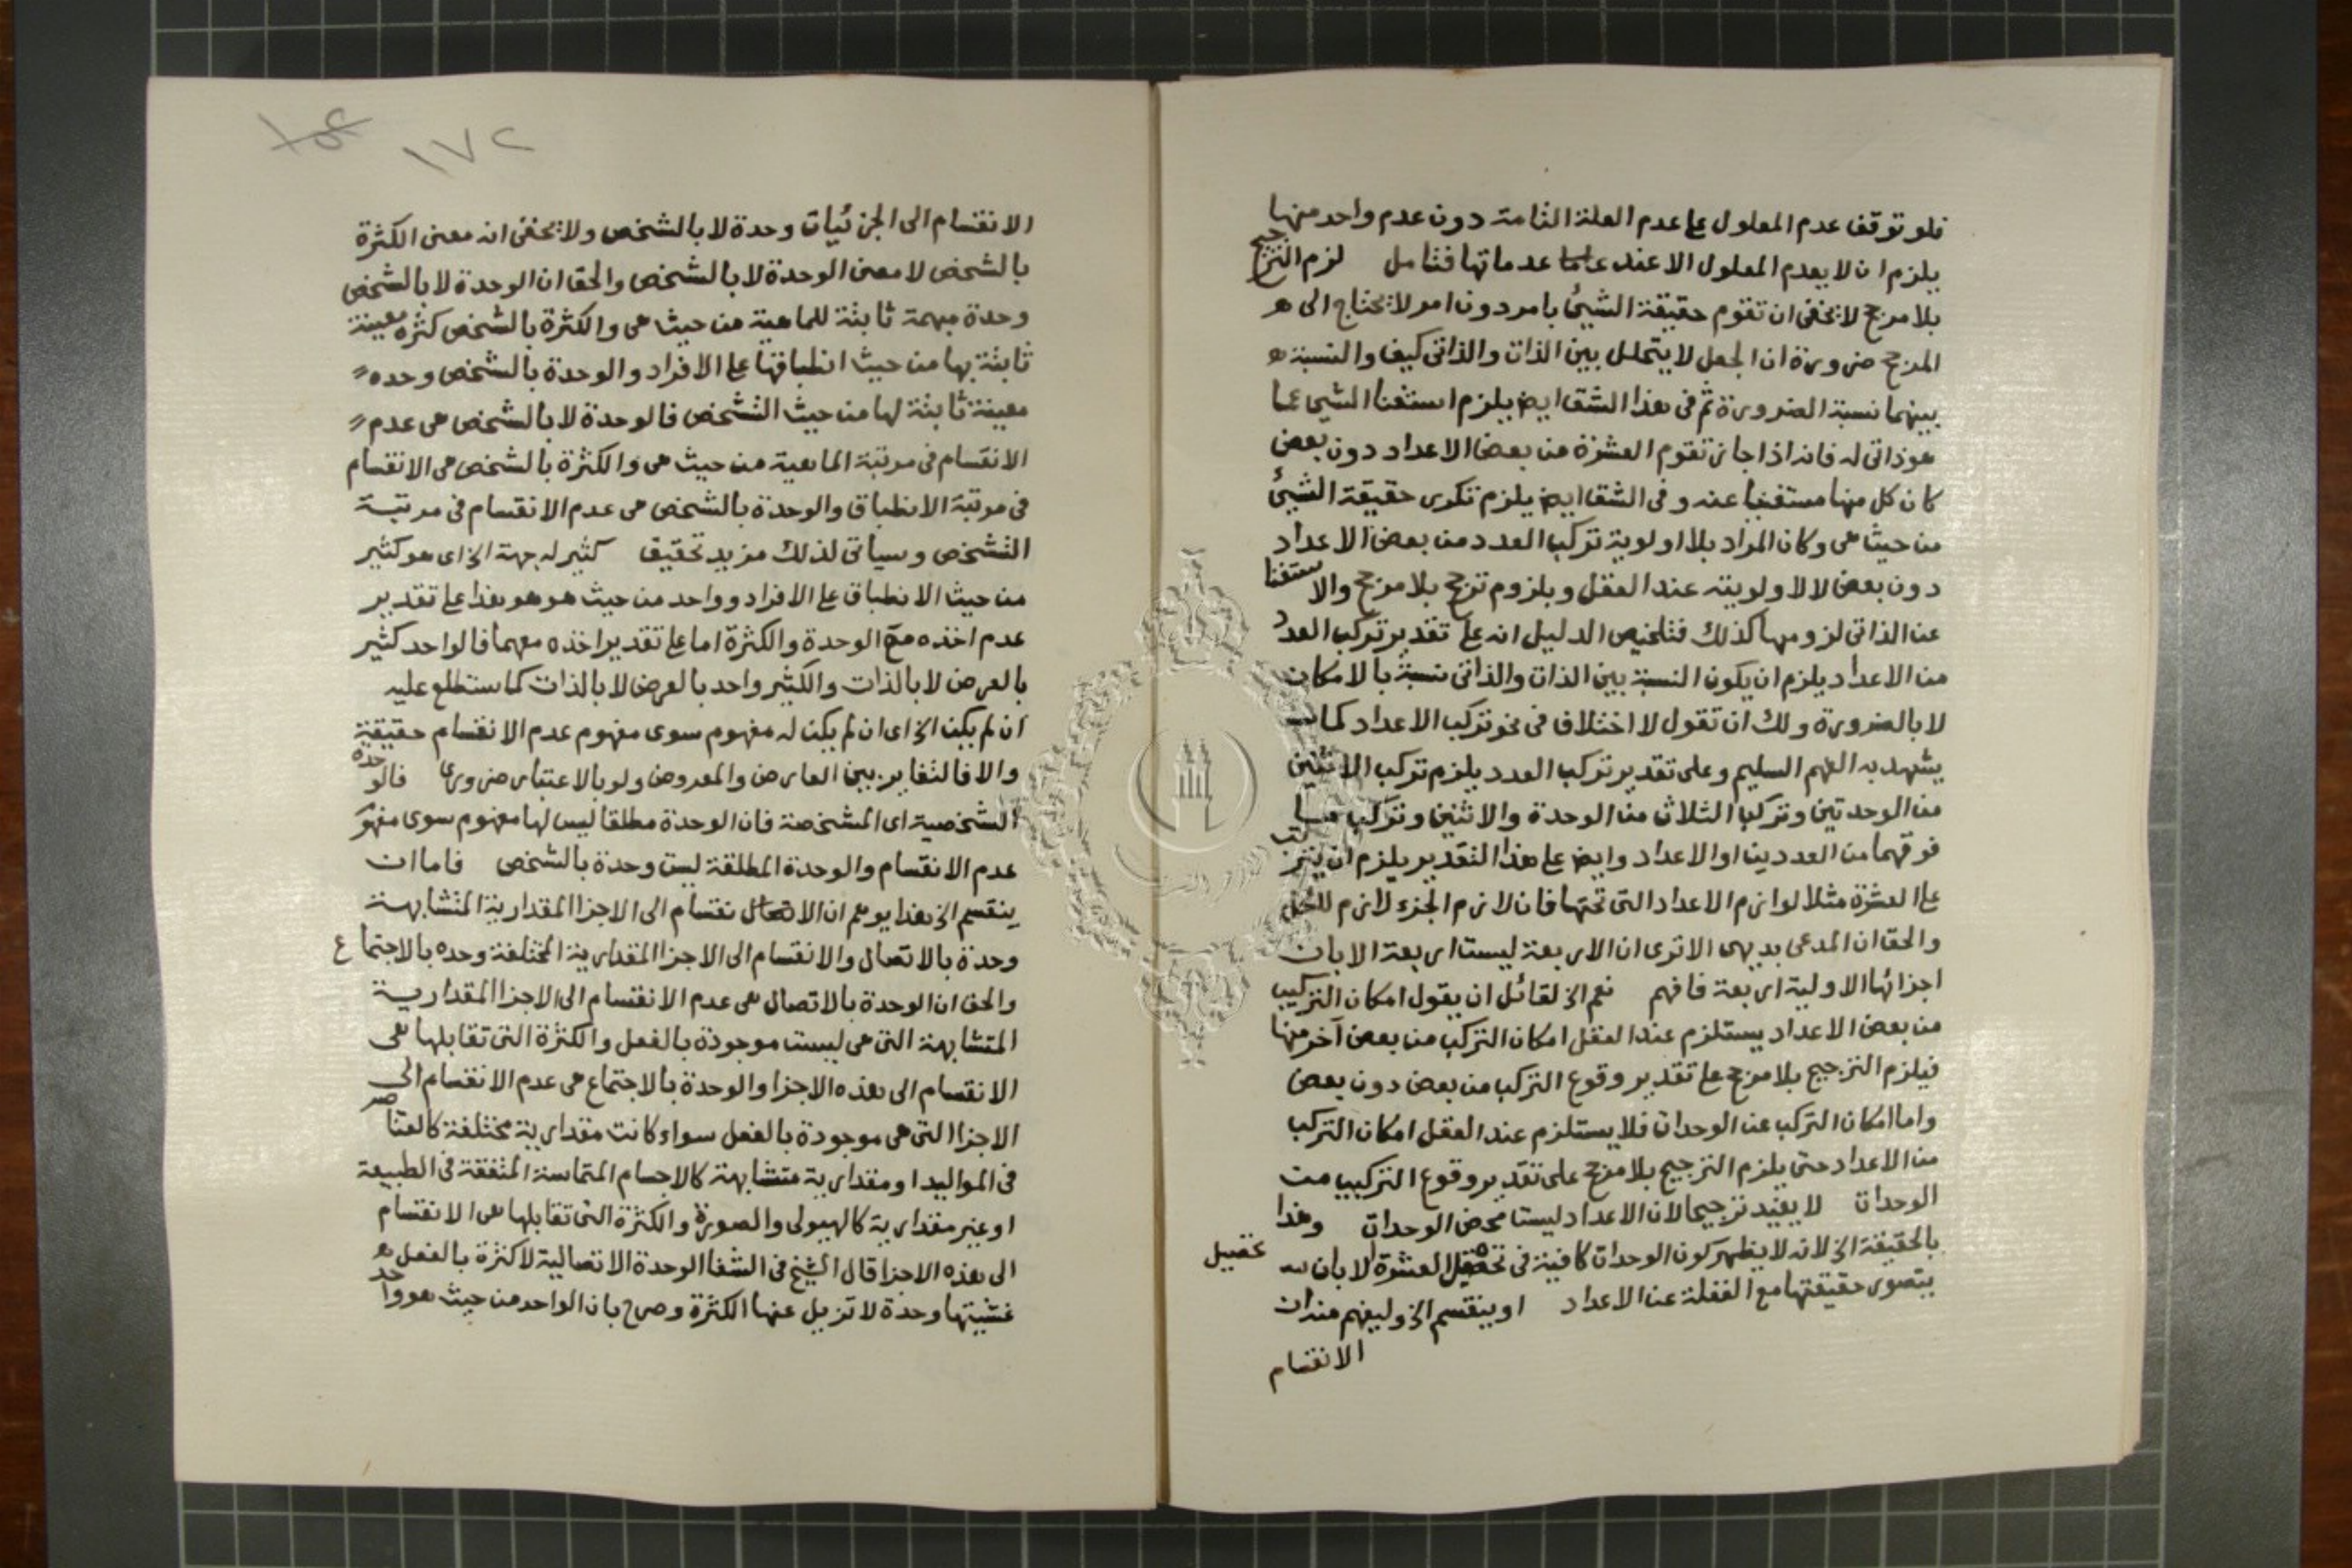 فلو توقف عدم المعلول على عدم العلة التامة دون عدم واحد منها
يلزم ان لا يعدم المعلول الا عند عدماتها فتامل لزم الترجيح
بلا مرجح لا يخفى ان تقوم حقيقة الشيئ بامر دون امر لا يحتاج الى
المرجح ضرورة ان الجعل لا يتخلل بين الذات والذاتى كيف والنسبة
بينهما نسبة الضرورة ثم فى هذا الشق ايض يلزم استغنا الشيئ عما
هو ذاتى له فانه اذا جاز تقوم العشرة من بعض الاعداد دون بعض
كان كل منها مستغنيا عنه وفى الشق ايض يلزم تكرر حقيقة الشيئ
من حيث هى وكان المراد بلا اولوية تركب العدد من بعض الاعداد
دون بعض لا لا ولويته عند العقل وبلزوم ترجح بلا مرجح والاستغنا
عن الذاتى لزومها كذلك فتلخيص الدليل انه على تقدير تركب العدد
من الاعداد يلزم ان يكون النسبة بين الذات والذاتى نسبة بالامكان
لا بالضرورة ولك ان تقول لا اختلاف فى نحو تركب الاعداد كما
يشهد به الفهم السليم وعلى تقدير تركب العدد يلزم تركب الاثنين
من الوحدتين وتركب الثلاث من الوحدة والاثنين وتركب ما
فوقهما من العددين او الاعداد وايض على هذا التقدير يلزم ان يترتب
على العشرة مثلا لوازم الاعداد التى تحتها فان لازم الجزء لازم للكل
والحق ان المدعى بديهى الا ترى ان الاربعة ليست اربعة الا بان
اجزائها الاولية اربعة فافهم نعم الخ لقائل ان يقول امكان التركيب
من بعض الاعداد يستلزم عند العقل امكان التركب من بعض آخر منها
فيلزم الترجيح بلا مرجح على تقدير وقوع التركب من بعض دون بعض
واما امكان التركب عن الوحدات فلا يستلزم عند العقل امكان التركب
من الاعداد حتى يلزم الترجيح بلا مرجح على تقدير وقوع التركيب من
الوحدات لا يفيد ترجيحا لان الاعداد ليستا محض الوحدات وهذا
بالحقيقة الخ لانه لا يظهر كون الوحدات كافية فى تحصيل العشرة الا بان
تحصيل
يتصور حقيقتها مع الغفلة عن الاعداد او ينقسم الخ وليفهم منه ان
الانقسام
١٧٢
الانقسام الى الجزئيات وحدة لا بالشخص ولا يخفى انه معنى الكثرة
بالشخص لا معنى الوحدة لا بالشخص والحق ان الوحدة لا بالشخص
وحدة مبهمة ثابتة للماهية من حيث هى والكثرة بالشخص كثرة معينة
ثابتة بها من حيث انطباقها على الافراد والوحدة بالشخص وحده
معينة ثابتة لها من حيث التشخص فالوحدة لا بالشخص هى عدم
الانقسام فى مرتبة الماهية من حيث هى والكثرة بالشخص هى الانقسام
فى مرتبة الانطباق والوحدة بالشخص هى عدم الانقسام فى مرتبة
التشخص وسياتى لذلك مزيد تحقيق كثير له جهة الخ اى هو كثير
من حيث الانطباق على الافراد وواحد من حيث هو هو هذا على تقدير
عدم اخذه مع الوحدة والكثرة اما على تقدير اخذه معهما فالواحد كثير
بالعرض لا بالذات والكثير واحد بالعرض لا بالذات كما ستطلع عليه
ان لم يكن الخ اى ان لم يكن له مفهوم سوى مفهوم عدم الانقسام حقيقية
والا فالتغاير بين العارض والمعروض ولو بالاعتبار ضرورى فالوحدة
الشخصية اى المشخصة فان الوحدة مطلقا ليس لها مفهوم سوى مفهوم
عدم الانقسام والوحدة المطلقة ليست وحدة بالشخص فاما ان
ينقسم الخ هذا يوهم ان الانقسام الى الاجزا المقدارية المتشابهة
وحدة بالاتصال والانقسام الى الاجزا المقدارية المختلفة وحده بالاجتماع
والحق ان الوحدة بالاتصال هى عدم الانقسام الى الاجزا المقدارية
المتشابهة التى هى ليست موجودة بالفعل والكثرة التى تقابلها هى
الانقسام الى هذه الاجزا والوحدة بالاجتماع هى عدم الانقسام الى
الاجزا التى هى موجودة بالفعل سواء كانت مقدارية مختلفة كالعناصر
فى المواليد او مقدارية متشابهة كالاجسام المتماسة المتفقة فى الطبيعة
او غير مقدارية كالهيولى والصورة والكثرة التى تقابلها هى الانقسام
الى هذه الاجزا قال الشيخ فى الشفا الوحدة الاتصالية لا كثرة بالفعل
غشيتها وحدة لا تزيل عنها الكثرة وصرح بان الواحد من حيث هو واحد